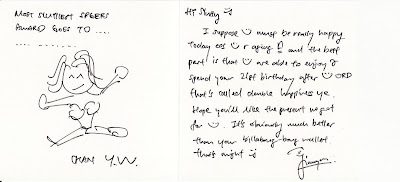 MOST SLUTTIEST SPGERS
AWARD GOES TO ....
.... .......
CHAN Y.W.
Hi Slutty
I suppose U must be really happy
Today cos U r aging and the best
part is that U are able to enjoy &
spend your 21st birthday after U ORD
that's called double happiness ye.
Hope you'll like the present we got
for U. It's obviously much better
than your billabong bong wallet
that's night